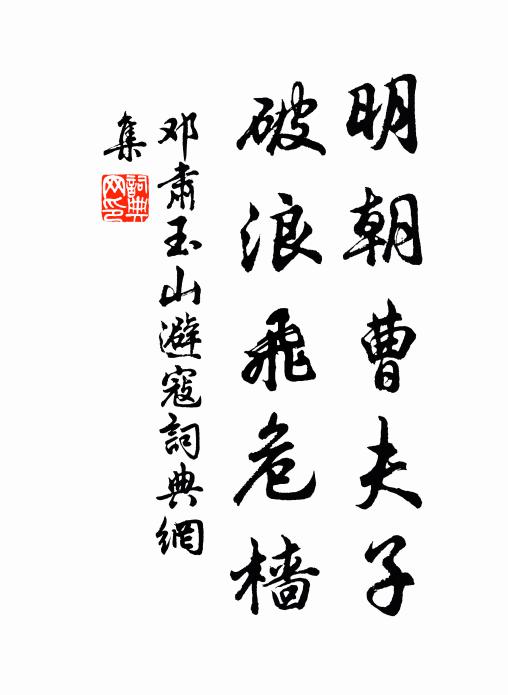 明朝曹夫子
破浪飛危檣
邓肅玉山避寇詞典網
集
詞典
网印